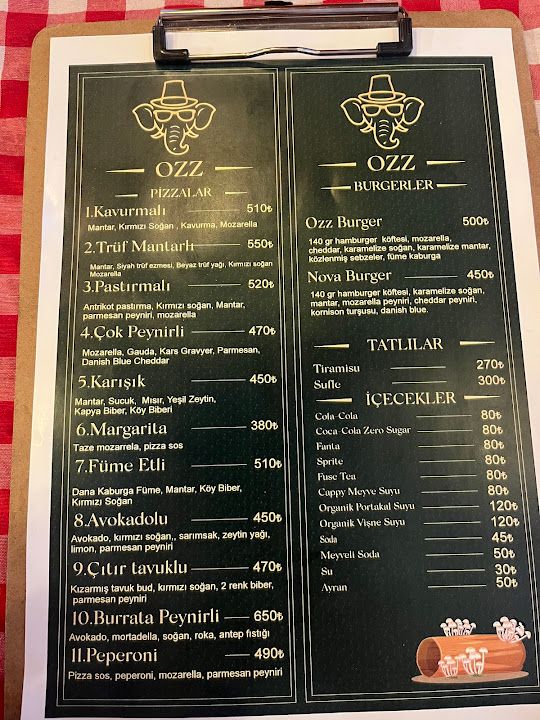 OZZ
PİZZALAR
1.Kavurmalı 510₺
Mantar, Kırmızı Soğan , Kavurma, Mozarella
2.Trüf Mantarlı 550₺
Mantar, Siyah trüf ezmesi, Beyaz trüf yağı, Kırmızı soğan
Mozarella
3.Pastırmalı 520₺
Antrikot pastırma, Kırmızı soğan, Mantar,
parmesan peyniri, mozarella
4.Çok Peynirli 470₺
Mozarella, Gauda, Kars Gravyer, Parmesan,
Danish Blue Cheddar
5.Karışık 450₺
Mantar, Sucuk, Mısır, Yeşil Zeytin,
Kapya Biber, Köy Biberi
6.Margarita 380₺
Taze mozarrela, pizza sos
7.Füme Etli 510₺
Dana Kaburga Füme, Mantar, Köy Biber,
Kırmızı Soğan
8.Avokadolu 450₺
Avokado, kırmızı soğan,, sarımsak, zeytin yağı,
limon, parmesan peyniri
9.Çıtır tavuklu 470₺
Kızarmış tavuk bud, kırmızı soğan, 2 renk biber,
parmesan peyniri
10.Burrata Peynirli 650₺
Avokado, mortadella, soğan, roka, antep fıstığı
11.Peperoni 490₺
Pizza sos, peperoni, mozarella, parmesan peyniri
OZZ
BURGERLER
Ozz Burger 500₺
140 gr hamburger köftesi, mozarella,
cheddar, karamelize soğan, karamelize mantar,
közlenmiş sebzeler, füme kaburga
Nova Burger 450₺
140 gr hamburger köftesi, karamelize soğan,
mantar, mozarella peyniri, cheddar peyniri,
kornison turşusu, danish blue.
TATLILAR
Tiramisu 270₺
Sufle 300₺
İÇECEKLER
Cola-Cola 80₺
Coca-Cola Zero Sugar 80₺
Fanta 80₺
Sprite 80₺
Fuse Tea 80₺
Cappy Meyve Suyu 80₺
Organik Portakal Suyu 120₺
Organik Vişne Suyu 120₺
Soda 45₺
Meyveli Soda 50₺
Su 30₺
Ayran 50₺